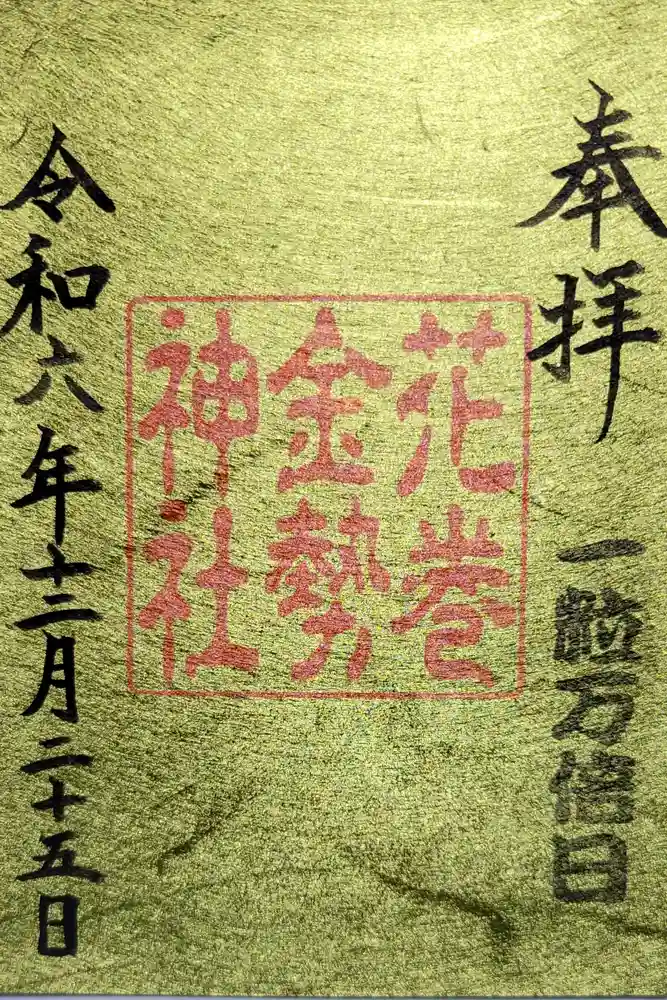 奉拝
一粒万倍日
花巻
金勢
神社
令和六年十二月二十五日